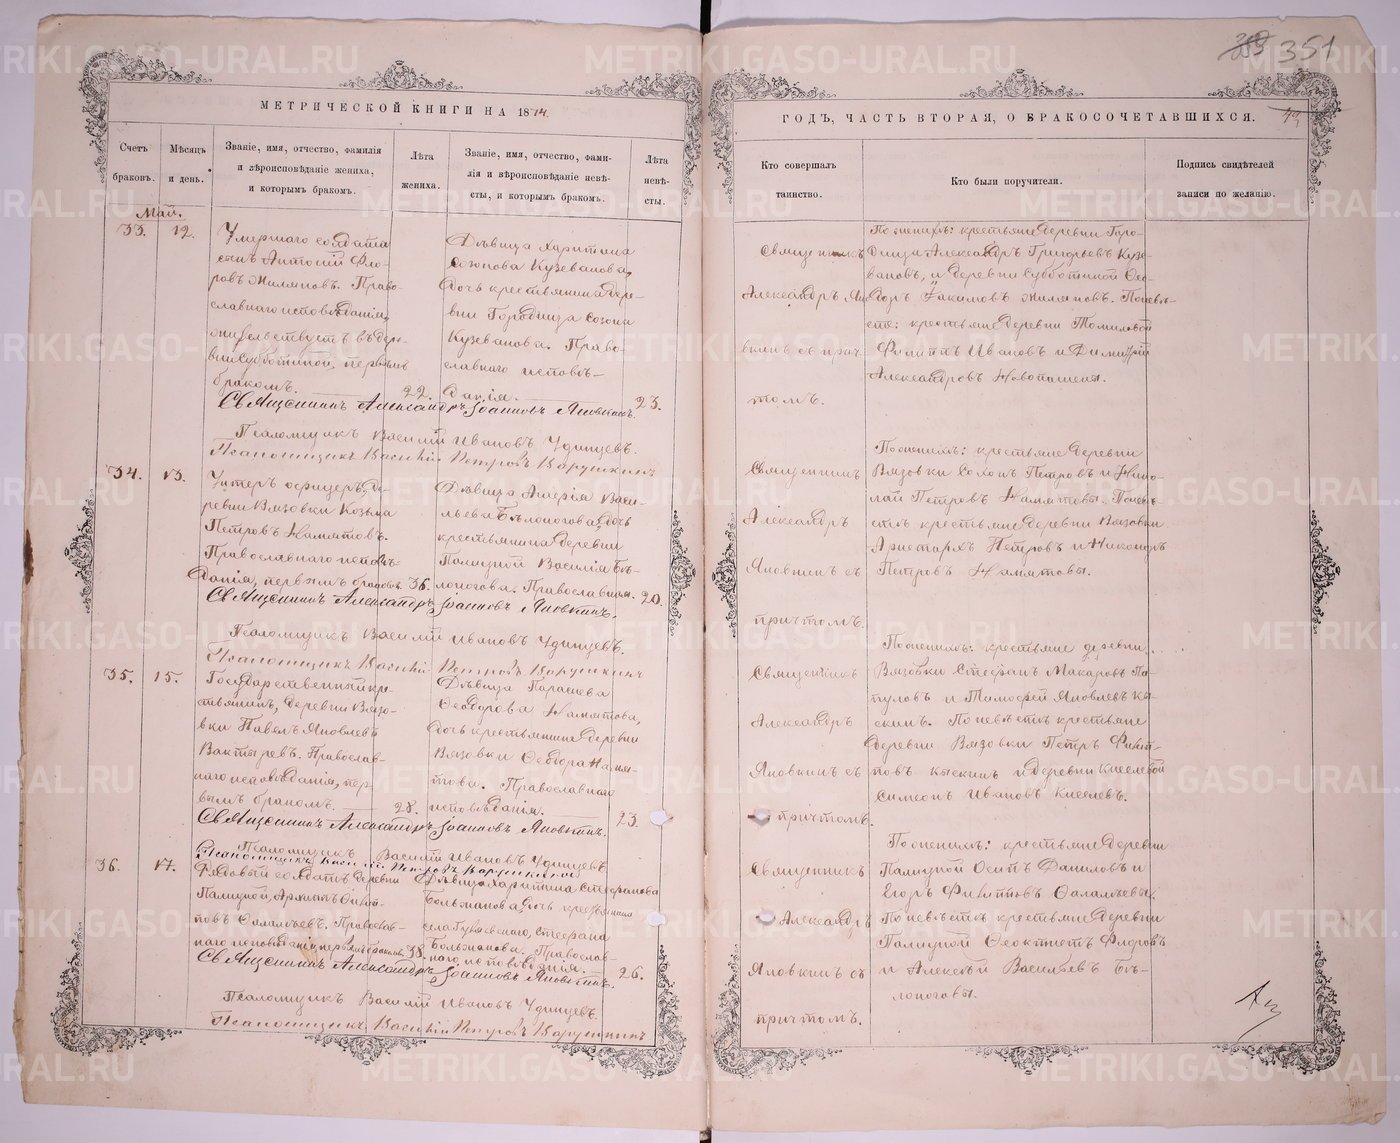 351
МЕТРИЧЕСКОЙ КНИГИ НА 1874.
Счетъ браковъ.
Мѣсяцъ и день.
Званіе, имя, отчество, фамилія и вѣроисповѣданіе жениха, и которымъ бракомъ.
Лѣта жениха.
Званіе, имя, отчество, фамилія и вѣроисповѣданіе невѣсты, и которымъ бракомъ.
Лѣта невѣсты.
Май.
33.
12.
Умершаго солдата
сынъ Антоній Фло-
ровъ Жиляковъ. Право-
славнаго исповѣданія,
жительствуетъ въ дер-
вни Субботиной, первымъ
бракомъ.
22.
Дѣвица Харитина
Созонова Кузеванова,
дочь крестьянина дере-
вни Городища Созона
Кузеванова. Право-
славнаго исповѣ-
данія.
23.
Священникъ Александръ Іоанновъ Яковкинъ.
Псаломщикъ Василій Ивановъ Удинцевъ.
Псаломщикъ Василій Петровъ Варушкинъ
34.
13.
Унтеръ офицеръ, де-
ревни Вязовки Козьма
Петровъ Намятовъ.
Православнаго исповѣ-
данія, первымъ бракомъ.
36.
Дѣвица Васи-
льева Бѣлоногова, дочь
крестьянина деревни
Палицной Василія Бѣ-
лоногова. Православная.
20.
Священникъ Александръ Іоанновъ Яковкинъ.
Псаломщикъ Василій Ивановъ Удинцевъ.
Псаломщикъ Василій Петровъ Варушкинъ
35.
15.
Государственный кре-
стьянинъ, деревни Вязо-
вки Павелъ Яковлевъ
Вактыревъ. Православ-
наго исповѣданія, пер-
вымъ бракомъ.
28.
Дѣвица Параскева
Ѳеодорова Намятова,
дочь крестьянина деревни
Вязовки Ѳеодора Намя-
това. Православнаго
исповѣданія.
23.
Священникъ Александръ Іоанновъ Яковкинъ.
Псаломщикъ Василій Ивановъ Удинцевъ
Псаломщикъ Василій Петровъ Варушкинъ
36.
17.
Рядовый солдатъ деревни
Палицной, Филип-
повъ Ѳалалѣевъ. Православ-
наго исповѣданія, первымъ бракомъ.
38.
Дѣвица Харитина Стефанова
Большакова, дочь крестьянина
села Стефана
Большакова. Православ-
наго исповѣданія.
26.
Священникъ Александръ Іоанновъ Яковкинъ.
Псаломщикъ Василій Ивановъ Удинцевъ.
Псаломщикъ Василій Петровъ Варушкинъ
ГОДЪ, ЧАСТЬ ВТОРАЯ, О БРАКОСОЧЕТАВШИХСЯ.
Кто совершалъ таинство.
Кто были поручители.
Подпись свидѣтелей записи по желанію.
Священникъ
Александръ Яко-
вкинъ съ прич-
томъ.
По женихѣ: крестьяне деревни Горо-
дища Александръ Григорьевъ Кузе-
вановъ, и деревни Субботиной Ѳео-
доръ Іакимовъ Жиляковъ. По невѣ-
стѣ: крестьяне деревни Томиловой
Филиппъ Ивановъ и Димитрій
Александровъ Новопашены.
Священникъ
Александръ
Яковкинъ съ
причтомъ.
По женихѣ: крестьяне деревни
Вязовки Созонъ Петровъ и Нико-
лай Петровъ Намятовы. По невѣ-
стѣ крестьяне деревни Вязовки
Аристархъ Петровъ и Никаноръ
Петровъ Намятовы.
Священникъ
Александръ
Яковкинъ съ
причтомъ.
По женихѣ: крестьяне деревни
Вязовки Стефанъ Макаровъ Па-
туловъ и Тимофей Яковлевъ Кы-
скинъ. По невѣстѣ крестьяне
деревни Вязовки Петръ Филип-
повъ Кыскинъ и деревни Киселевой
Симеонъ Ивановъ Киселевъ.
Священникъ
Александръ
Яковкинъ съ
причтомъ.
По женихѣ: крестьяне деревни
Палицной Осипъ Даниловъ и
Егоръ Филипповъ Ѳалалѣевы.
По невѣстѣ крестьяне деревни
Палицной Ѳеоктистъ Фадровъ
и Алексѣй Васильевъ Бѣ-
лоноговы.
METRIKI.GASO-URAL.RU